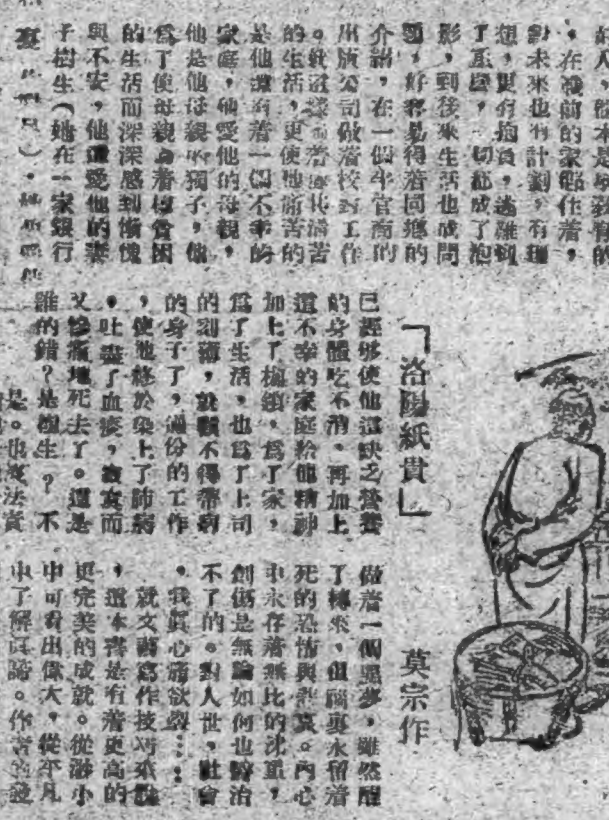 ，在戰前的家
對未來也有計劃，有理
想，更有抱負，逃難到
了重慶，一切都成了泡
影，到後來生活也成問
題，好容易得着同鄉的
介紹，在一個半官商的
出版公司做着校對工作
。就這樣 着 清苦
的生活，更使他痛苦的
是他還有着一個不幸的
家庭，他愛他的母親，
他是他母親的獨子，他
爲了使母親 着 貧困
的生活而深深感到慚愧
與不安，他還愛他的妻
子樹生（她在一家銀行
「洛陽紙貴」
莫宗作
已經够使他這缺乏營養
的身體吃不消，再加上
這不幸的家庭給他精神
加上了枷鎖，爲了家，
爲了生活，也爲了上司
的刻薄，就顧不得帶病
的身子了，過份的工作
，使他終於染上了肺病
，吐盡了血痰，寂寞而
又慘痛地死去了。這是
誰的錯？是樹生？不
是。
做着一個惡夢，雖然醒
了轉來，但腦裏永留着
死的恐怖與悲哀。內心
中永存着無比的沈重，
創傷是無論如何也醫治
不了的。對人世，社會
，我眞心痛欲絕……。
就文藝寫作技巧來說
，這本書是有着更高的
更完美的成就。從渺小
中可看出偉大，從平凡
中了解眞諦。作者的